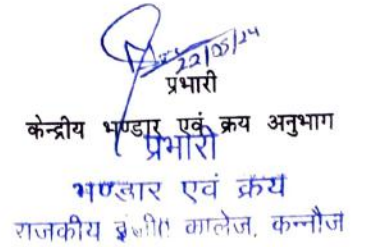 22/05/24
प्रभारी
केन्द्रीय भण्डार एवं क्रय अनुभाग
प्रभारी
भण्डार एवं क्रय
राजकीय इंजी० कालेज, कन्नौज